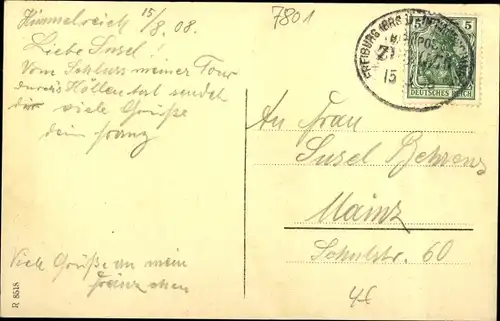 Himmelreich 15/8.08.
Liebe Susel!
Vom Schluss meiner Tour
durchs Höllental sendet
dir viele Grüße
dein Franz
Viele Grüße an mein
Fränzchen
R 8518
7801
FREIBURG (BRSG.)
BAHNPOST
15
5
DEUTSCHES REICH
An Frau
Susel Behrens
Mainz
Schulstr. 60